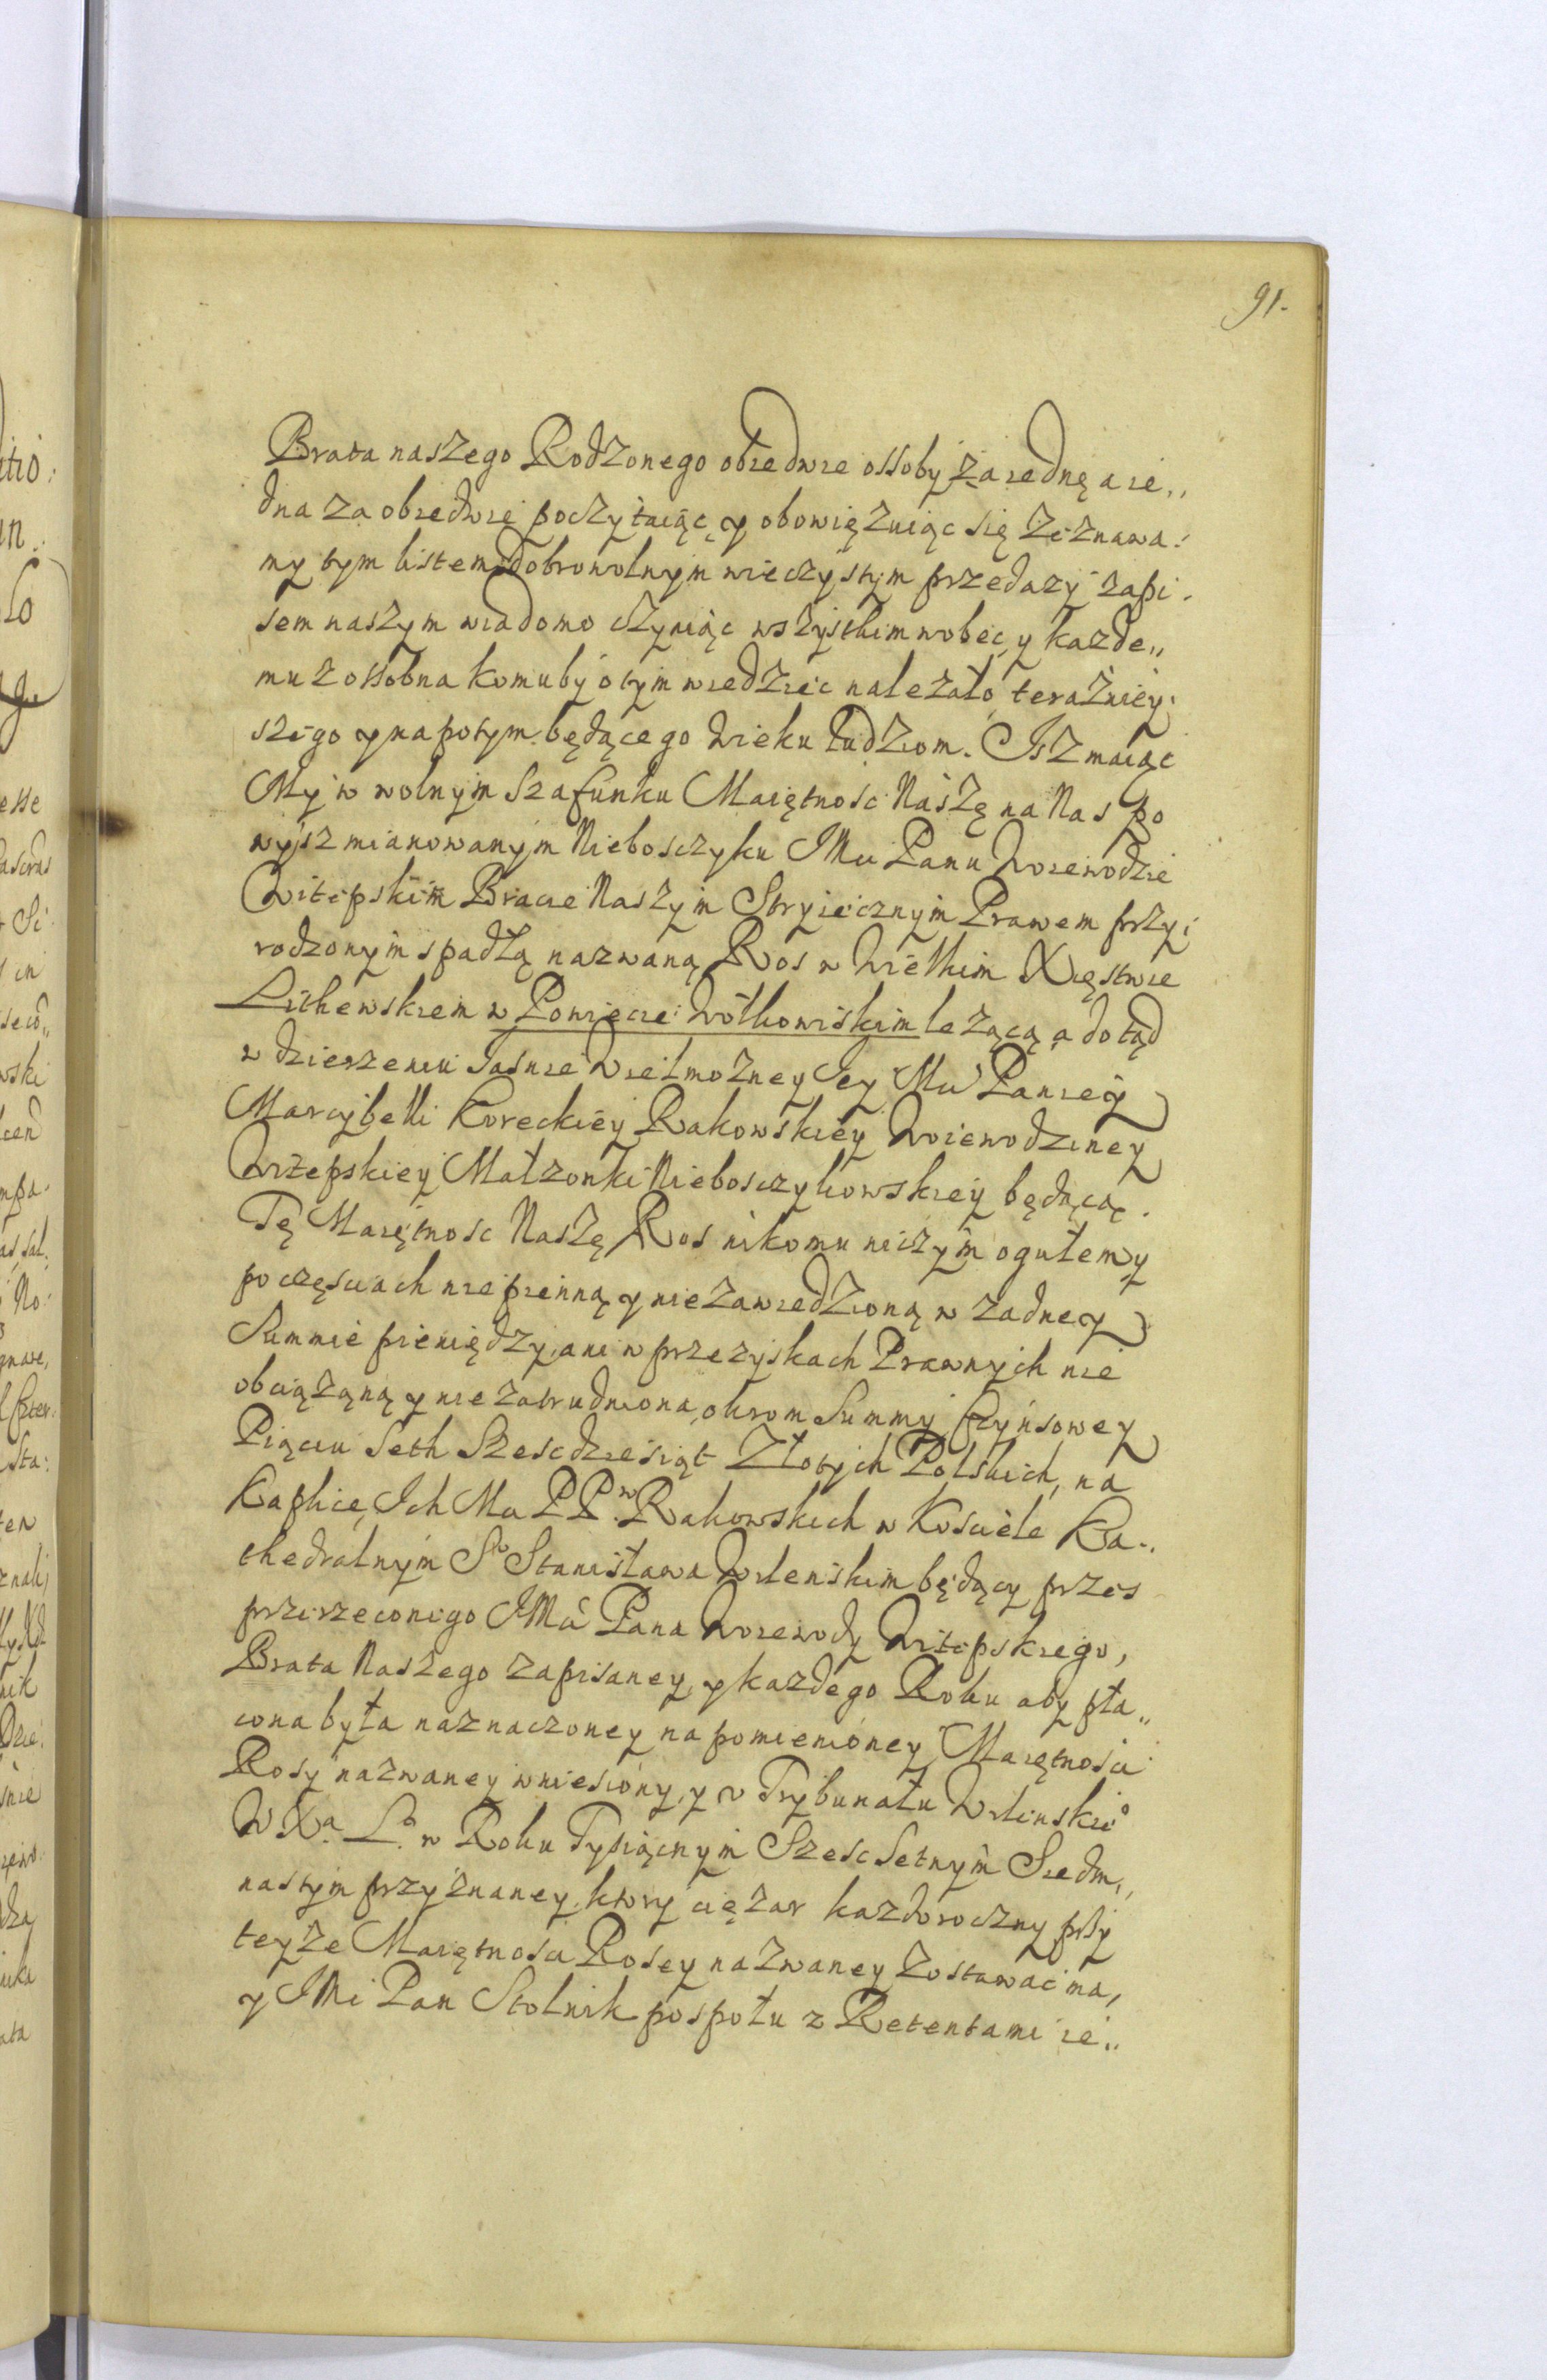 91.
Brata naszego Rodzonego obiedwie ossoby za iednę a ie„
dna za obiedwie poczytaiąc y obowięzuiąc się zeznawa:
my tym listem dobrowolnym wieczystym przedazy zapi-
sem naszym wiadomo czyniąc wszystkim wobec y kazde„
mu z ossobna komuby o tym wiedziec należało teraźniey:
szego y na potym będącego wieku ludziom. Isz maiąc
My w wolnym Szafunku Maiętnosc Naszę na Nas po
wysz mianowanym Nieboszczyku JMci Panu Woiewodzie
Witepskim Bracie Naszym Stryiecznym Prawem przy:
rodzonym spadłą nazwaną Ros w Wielkim Xięstwie
Lithewskiem w Powiecie Wołkowiskim leżącą a dotąd
w dzierzeniu Jasnie Wielmożney Jey Mci Paniey
Marcybelli Koreckiey Rakowskiey Woiewodziney
Witepskiey Małzonki Nieboszczykowskiey będącą.
Tę Maiętnosc Naszę Ros nikomu niczym ogułem y
po częsciach nie pienną y nie zawiedzioną w żadney
Summie pieniędzy, ani w przezyskach Prawnych nie
obciążąną y nie zatrudnioną, okrom Summy Czynsowey
Piąciu Seth Szescdziesiąt Złotych Polskich, na
Kaplicę Ich Mci PP.w Rakowskich w Kosciele Ka„
thedralnym Sto Stanisława Wilenskim będący przes
przerzeconego JMci Pana Woiewody Witepskiego,
Brata Naszego zapisaney, y kazdego Roku aby pła„
cona była naznaczoney na pomienioney Maiętnosci
Rosy nazwaney wniesiony, y v Trybunału Wilenskiego
W Xa Lo w Roku Tysiącnym Szesc Setnym Siedm„
nastym przyznaney, ktory ciężar kazdoroczny przy
teyże Maiętnosci Rosey nazwaney zostawac ma,
y JMci Pan Stolnik pospołu z Retentami ie„